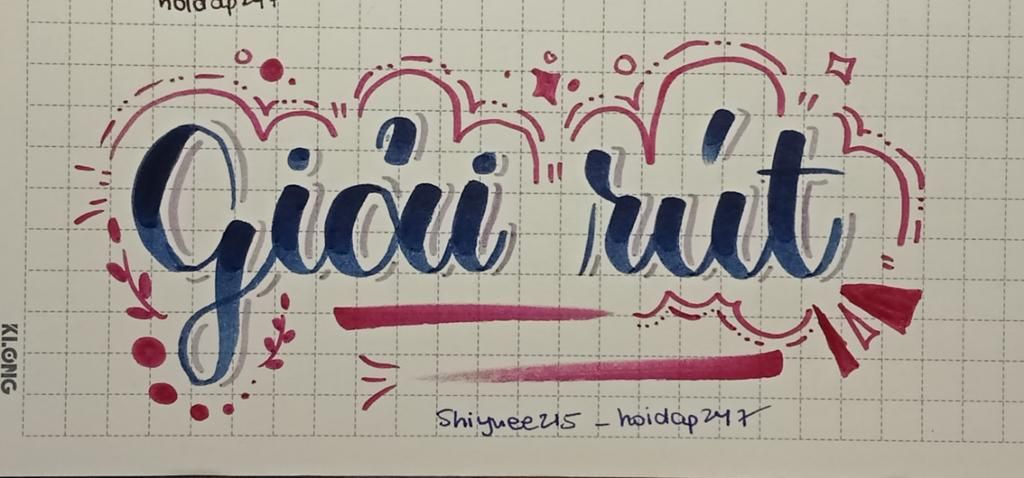 hoidap247
Giải rút
KLONG
Shiyuee215 - hoidap247